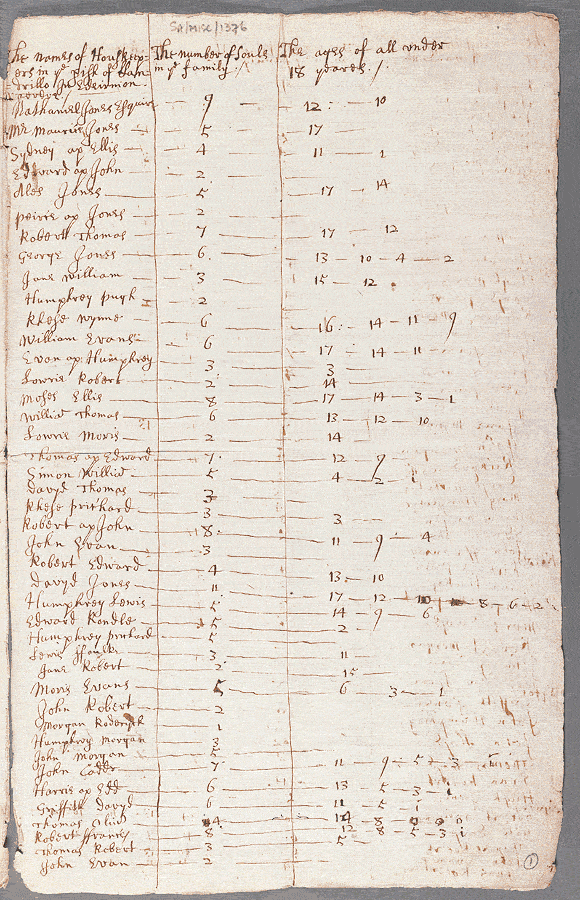 SA/MISC/1376
The names of Houskeep- The number of Souls The ages of all under
ers in ye pish of Lan- in ye family / 18 yeares /
drillo in Edeirnion
Nathaniel Jones Esquire 9 12 10
Mr Maurice Jones 5 17
Sydney ap Ellis 4 11 1
Edward ap John 2
Ales Jones 5 17 14
peirce ap Jones 2
Robert Thomas 7 17 12
George Jones 6 13 10 4 2
Jane William 3 15 12
Humphrey pugh 2
Rhese wynne 6 16 14 11 9
William Evans 6 17 14 11
Evan ap Humphrey 3 3
Lowrie Robert 2 14
Moses Ellis 8 17 14 3 1
William Thomas 6 13 12 10
Lowrie Moris 2 14
Thomas ap Edward 7 12 9
Simon William 5 4 2 1
Davyd Thomas 3
Rhese prichard 3
Robert ap John 8 3
John Evan 3 11 9 4
Robert Edward 4
Davyd Jones 11 13 10
Humphrey Lewis 5 17 12 10 8 6 2
Edward Kendle 5 14 9 6
Humphrey prichard 5 2
Lewis ffoulk 3 11
Jane Robert 2 15
Moris Evans 5 6 3 1
John Robert 2
Morgan Roderick 1
Humphrey Morgan 3
John Morgan 5
John Cadd 7 11 9 5 3
Harrie ap Edd 6 13 5 3 1
Griffith Davyd 6 11 5 1
Thomas 4 14 8
Robert ffrancis 8 12 8 5 3 1
Thomas Robert 3 5
John Evan 2
1